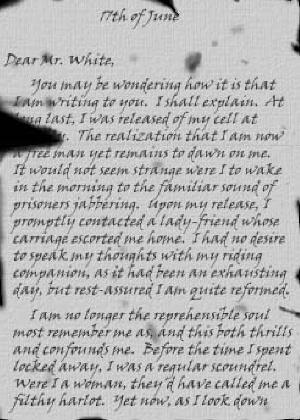 17th of June
Dear Mr. White,
You may be wondering how it is that
I am writing to you. I shall explain. At
long last, I was released of my cell at
The realization that I am now
a free man yet remains to dawn on me.
It would not seem strange were I to wake
in the morning to the familiar sound of
prisoners jabbering. Upon my release, I
promptly contacted a lady-friend whose
carriage escorted me home. I had no desire
to speak my thoughts with my riding
companion, as it had been an exhausting
day, but rest-assured I am quite reformed.
I am no longer the reprehensible soul
most remember me as, and this both thrills
and confounds me. Before the time I spent
locked away, I was a regular scoundrel.
Were I a woman, they'd have called me a
filthy harlot. Yet now, as I look down